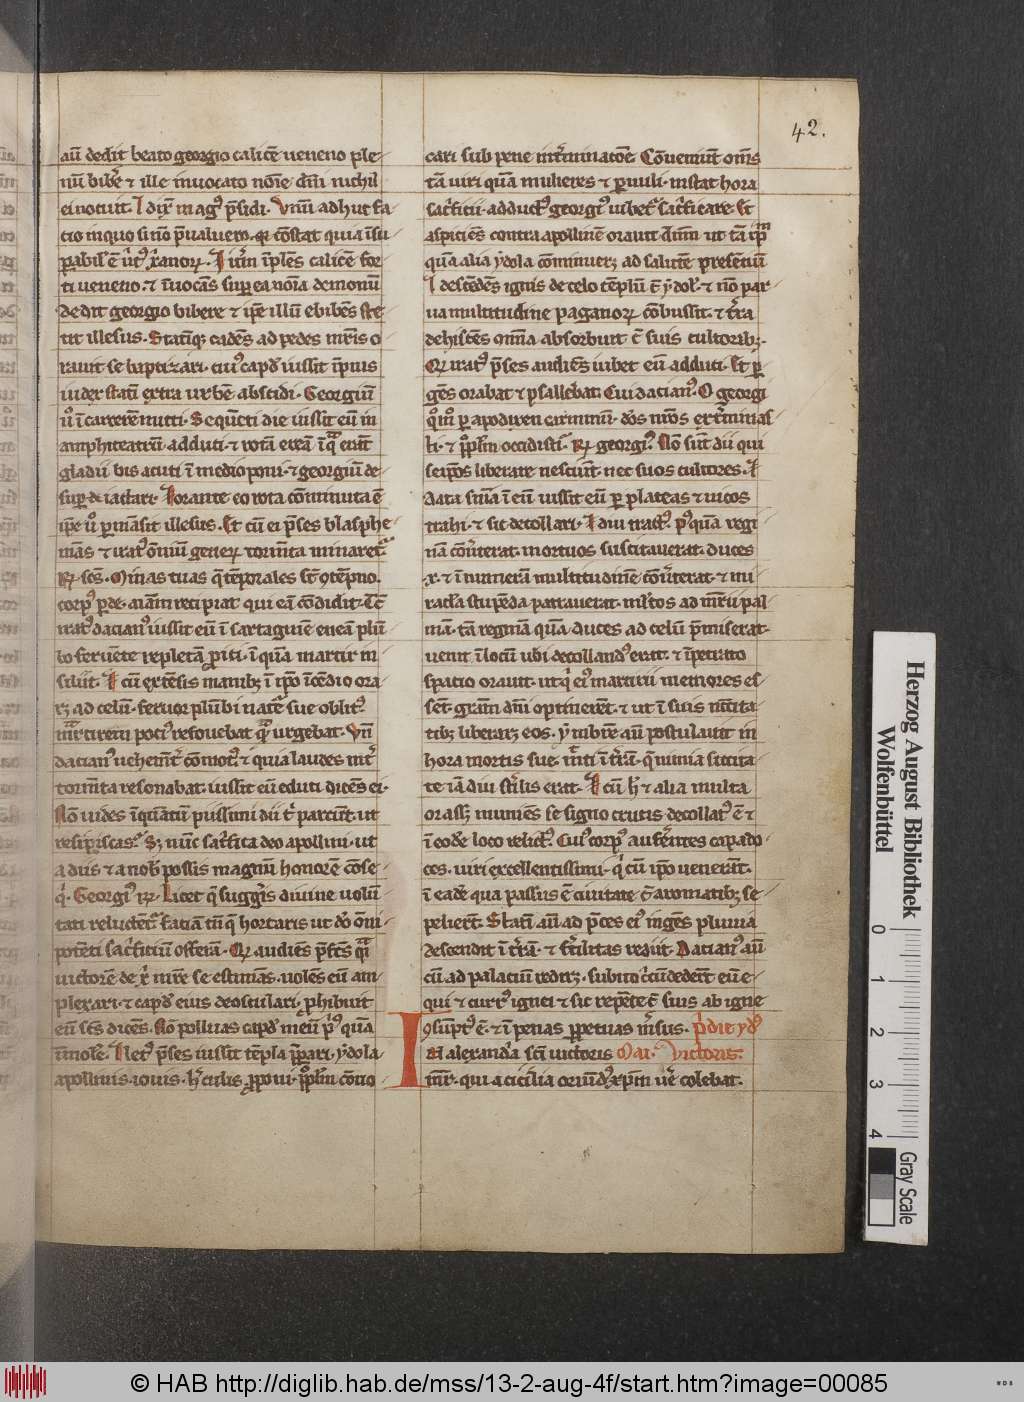 42.
aū dedit beato georgio calicē ueneno ple
nū bibe͛ ⁊ ille inuocato noīe dn̄i nichil
ei nocuit. I dix̄ magꝰ p̄sidi. Vnū adhuc fa
cio in quo si nō p̄ualuero. ꝙ cōstat quia īsu
ꝑabil̓ ē u͛tꝰ xp̄ianoꝝ. Iteꝝ īplēs calicē for
ti ueneno. ⁊ īuocās suꝑ ea noīa demonū
dedit georgio bibere ⁊ ip̄e illū ebibēs ste
tit illesus. Statīqꝫ cadēs ad pedes mr̄is o
rauit se baptizari. cuiꝰ capđ iussit īpius
iudex statī extra urbē abscidi. Georgiū
u͛o ī carcerē mitti. Sequēti die iussit eū in
amphiteatrū adduci. ⁊ rotā ereā ī qͣ erāt
gladii bis acuti ī medio poni. ⁊ georgiū de
suꝑ iactari. Iorante eo rota cōminuta ē
ip̄e u͛o ꝑmāsit illesus. Et cū ei p̄ses blasphe
mās ⁊ iratꝰ ōniū geneꝝ torm̄ta minaret͛.
Rx̄. scs̄. Minas tuas q̄ tēporales st̄ ꝯtēpno.
corpꝰ ꝑde. aīam recipiat qui eā cōdidit. Tc̄
iratꝰ dacianꝰ iussit eū ī sartagine enea plū
bo feruēte repletā ꝓici. ī quā martir in
siliit. I cū extēsis manibꝫ ī ip̄o īcēdio ora
rꝫ ad celū. feruor plūbi nat͛e sue oblitꝰ
mr̄tirem potiꝰ refouebat qͣ urgebat. Vn̄
dacianꝰ uehem̄t͛ cōmotꝰ. ⁊ quia laudes int͛
torm̄ta resonabat. iussit eū educi dicēs ei.
Nō uides īquātū piissimi dii t͛ parcūt. ut
resipiscas. Sꝫ nūc sac͛fica deo apollini. ut
a diis ⁊ a nob̓ possis magnū honorē cōse
q͛. Georgiꝰ rx̄. Licet q̄ sugg͛is diuine uolū
tati reluctēt͛. faciā tn̄ q̄ hortaris ut do ōni
potēti sac͛ficiū offerā. Qꝫ audiēs p̄fcs̄
uictorē de x͛ mr̄e se estimās. uolēs eū am
plexari. ⁊ capđ eius deosculari. ꝓhibuit
eū scs̄ dicēs. Nō polluas capđ meū p͛ꝰ quā
īmole. Netꝰ p̄ses iussit tēpla p̄ꝑari. ydola
apollinis. iouis. h͛culis ꝓponi. pp̄lm̄ cōuo
cari sub pene int͛minatōe. Cōueniūt om̄s
tā uiri quā mulieres ⁊ ꝑuuli. instat hora
sac͛ficii. adductꝰ georgiꝰ iubet͛ sac͛ficare. Et
aspiciēs contra apollinē orauit dn̄m ut tā ip̄m
quā alia ydola cōminuerꝫ ad salutē presentiū
I descēdēs ignis de celo tēplū cū ydol̓. ⁊ nō par
ua multitudine paganoꝝ cōbussit. ⁊ t͛ra
dehiscēs omnia absorbuit cū suis cultoribꝫ.
Qꝫ iratꝰ p̄ses audiēs iubet eū adduci. Et ꝑ
gēs orabat ⁊ psallebat. Cui dacianꝰ. O georgi
ꝑ apodixen carminū dōs nr̄os ext͛minas
ti. ⁊ pp̄lm̄ occidisti. Rx̄. georgiꝰ. Nō sūt dii qui
seip̄os liberare nesciūt. nec suos cultores. I
data sn̄ia ī eū iussit eū ꝑ plateas ⁊ uicos
trahi. ⁊ sic decollari. I diu tractꝰ. pꝰ quā regi
nā cōu͛terat. mortuos suscitauerat. duces
.x. ⁊ īnumerā multitudinē cōu͛terat. ⁊ mi
racl̓a stupēda patrauerat. ml̓tos ad mr̄ii pal
mā. tā reginā quā duces ad celū p̄miserat.
uenit ī locū ubi decollandꝰ erat. ⁊ īpetrato
spacio orauit. ut q͛ eiꝰ martirii memores es
sēt. grām dn̄i optinerēt. ⁊ ut ī suis nc̄cita
tibꝫ liberarꝫ eos. ymbrē aū postulauit in
hora mortis sue. mr̄ti ī t͛rā. q̄ nimia siccita
te iā diu st͛ilis erat. I cū h̄ ⁊ alia multa
orassꝫ. muniēs se signo crucis decollatꝰ ē. ⁊
ī eodē loco relictꝰ. Cuiꝰ corpꝰ auferētes capado
ces. uiri excellentissimi. q͛ cū ip̄o uenerāt.
ī eadē qua passus ē ciuitate cū aromatibꝫ se
pelierūt. Statī aū ad p̄ces eiꝰ ingēs pluuia
descendit ī t͛rā. ⁊ f͛tilitas rediit. Dacianꝰ aū
cū ad palaciū redirꝫ. subito c͛cūdederūt eū e
qui ⁊ currꝰ ignei ⁊ sic repēte cū suis ab igne
ꝯsūptꝰ ē. ⁊ ī penas ꝑpetuas m͛sus. P͛die ydꝰ
IN alexandria sc̄i uictoris Mai. Victoris.
mr̄. qui a cicilia oriūdꝰ xp̄m ue͛ colebat.
Herzog August Bibliothek
Wolfenbüttel
0
1
2
3
4
Gray Scale
© HAB http://diglib.hab.de/mss/13-2-aug-4f/start.htm?image=00085